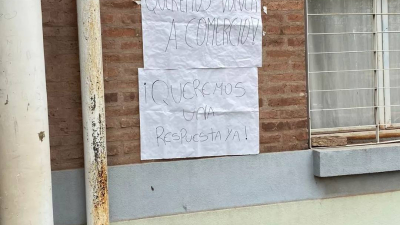 QUEREMOS VOLVER
A COMERCION
¡QUEREMOS
UNA
RESPUESTA YA!